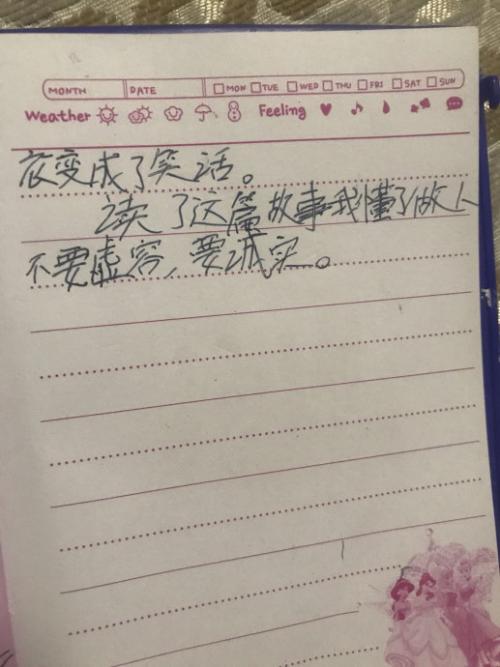 MONTH DATE MON TUE WED THU FRI SAT SUN
Weather Feeling
衣变成了笑话。
读了这篇故事我懂了做人
不要虚容，要诚实。